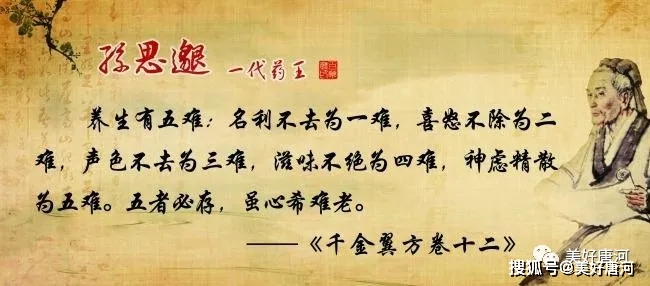 孙思邈 一代药王
养生有五难：名利不去为一难，喜怒不除为二
难，声色不去为三难，滋味不绝为四难，神虑精散
为五难。五者必存，虽心希难老。
——《千金翼方卷十二》
美好唐河
搜狐号@美好唐河